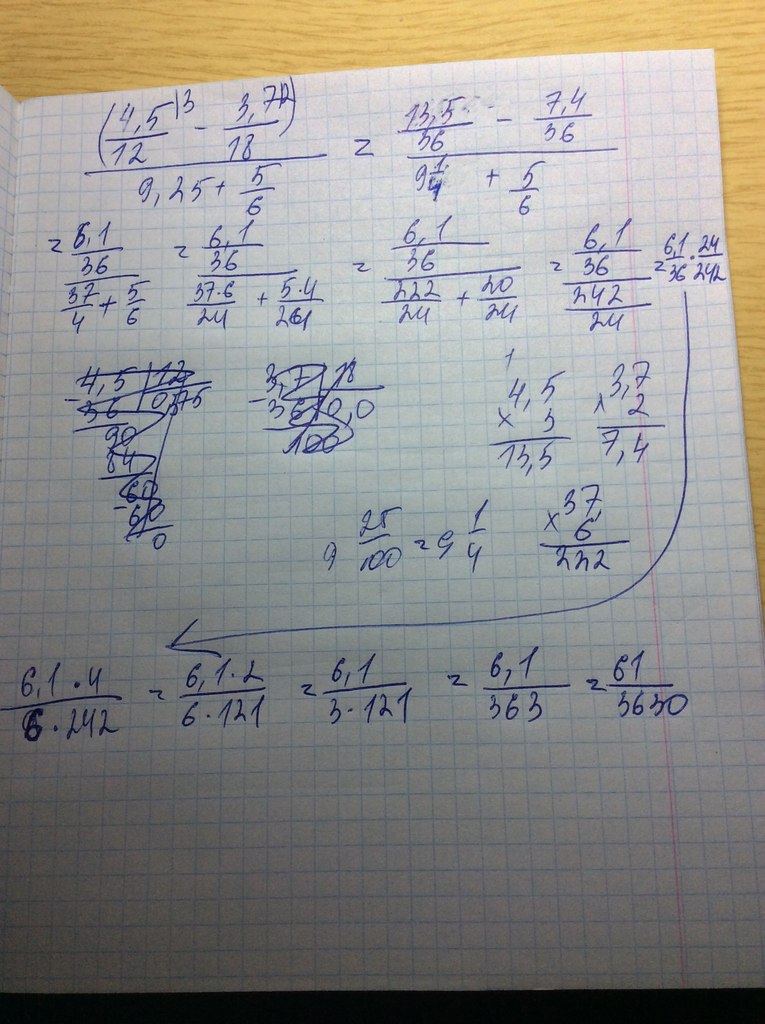 (4,5/12 |3 - 3,7/18 |2) / (9,25 + 5/6) = (13,5/36 - 7,4/36) / (9 1/4 + 5/6)
= (6,1/36) / (37/4 + 5/6) = (6,1/36) / (37·6/24 + 5·4/24) = (6,1/36) / (222/24 + 20/24) = (6,1/36) / (242/24) = 6,1/36 · 24/242
4,5 | 12
- 36 | 0,375
90
84
- 60
60
0
- 3,7 | 18
36 | 0,0
100
1
4,5
× 3
13,5
3,7
× 2
7,4
9 25/100 = 9 1/4
37,
× 6
222
6,1·4 / 6·242 = 6,1·2 / 6·121 = 6,1 / 3·121 = 6,1 / 363 = 61 / 3630